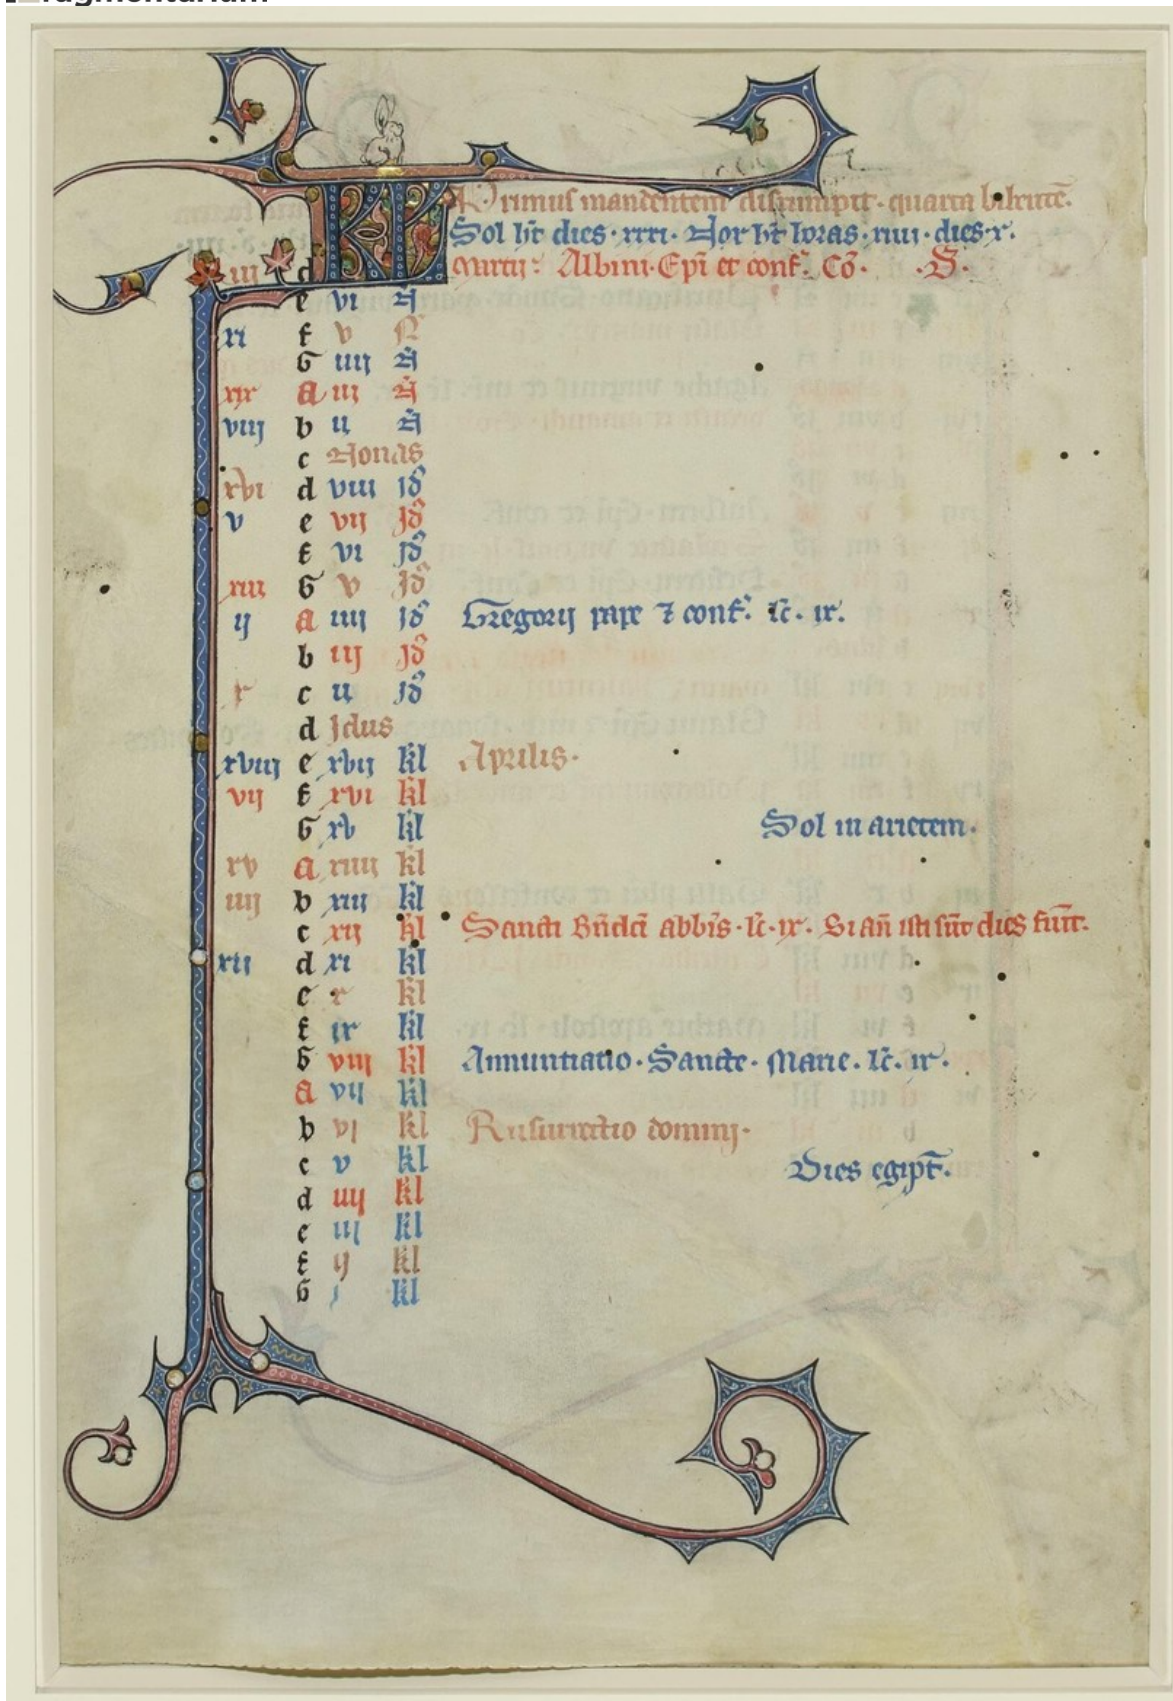 KL Primus mandentem disrumpit · quarta bibentē.
Sol ht dies · xxxi · Nox ht horas · xiiii · dies · x ·
iij d Martij · Albini · Epi et conf. Cō · · D ·
e vi N
xi f v N
G iiij N
xix a iij N
viij b ij N
c Nonas
xvi d viii id
v e vij id
f vi id
xiii G v id
ij a iiij id Gregorij pape ⁊ conf. lc. ix.
b iij id
x c ij id
d Idus
xviij e xvij kl Aprilis ·
vij f xvi kl
G xv kl Sol in arietem ·
xv a xiiij kl
iiij b xiij kl
c xij kl Sancti Bndci abbis · lc · ix · dies
xij d xi kl
e x kl
f ix kl
G viij kl Annuntiatio · Sancte · Marie · lc. ix ·
a vij kl
b vi kl Resurrectio domini ·
c v kl Dies egipt.
d iiij kl
e iij kl
f ij kl
G kl